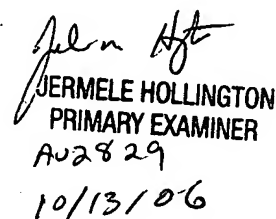 JERMELE HOLLINGTON
PRIMARY EXAMINER
AU2829
10/13/06